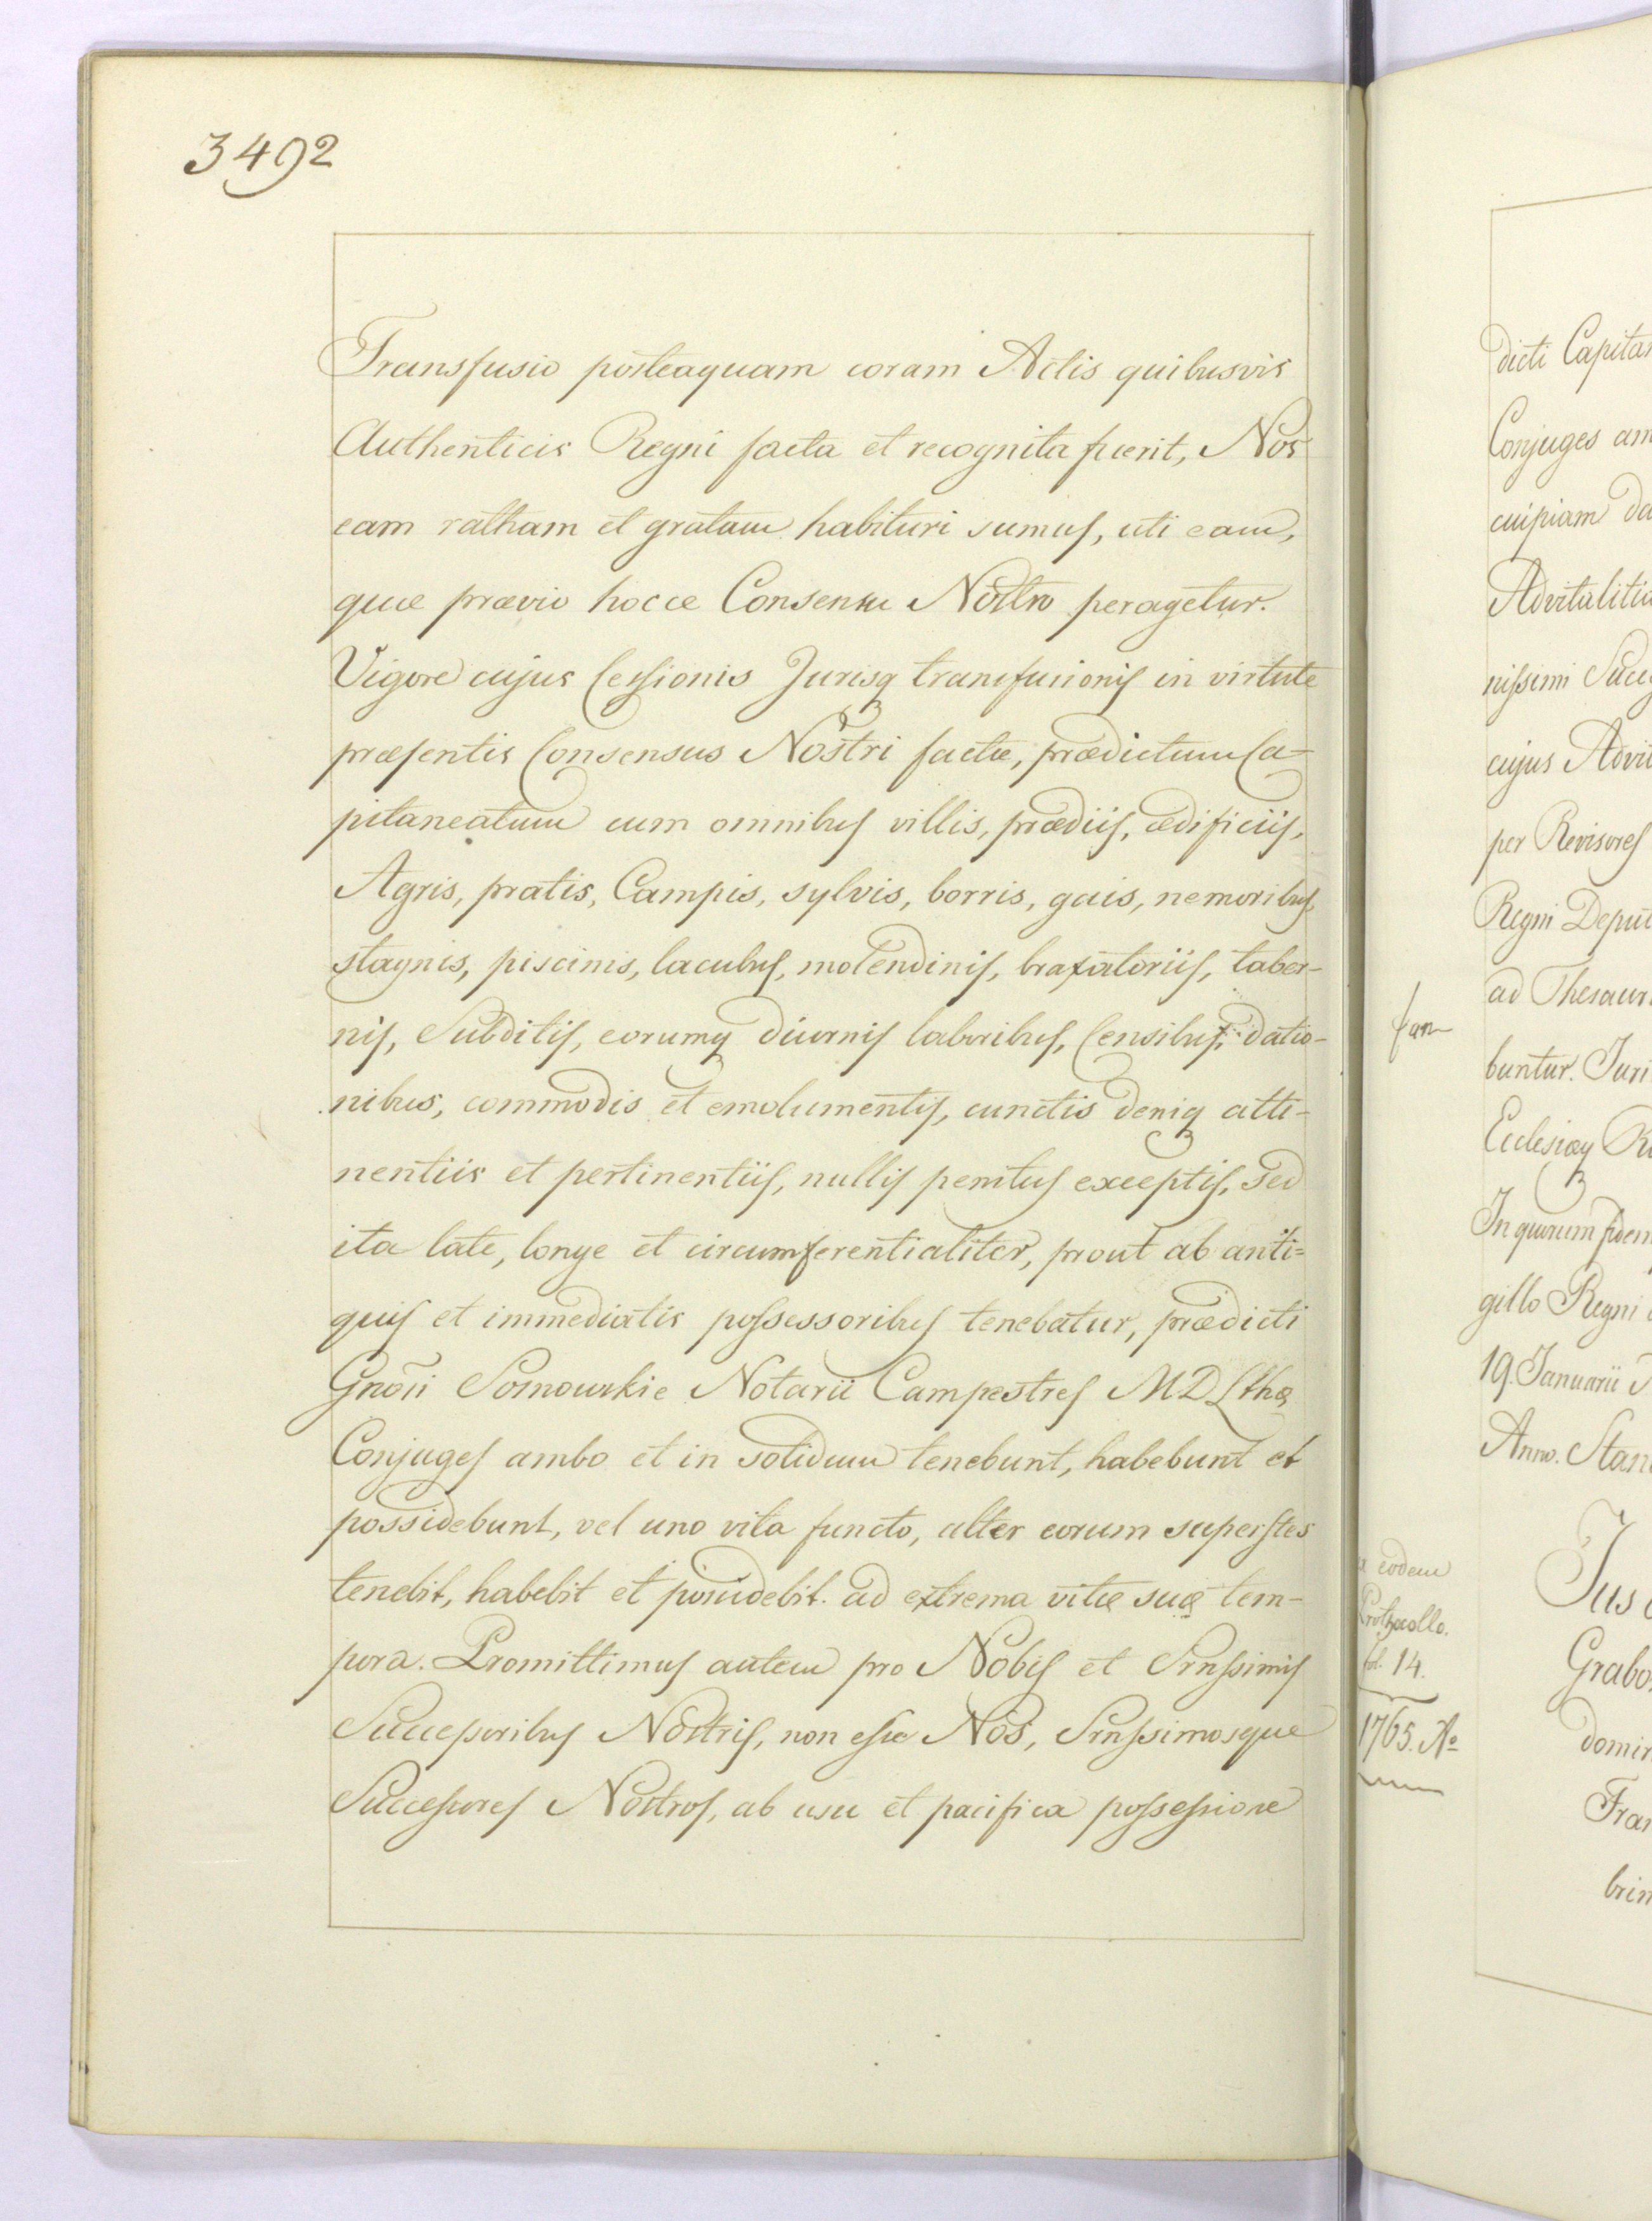 3492
Transfusio posteaquam coram Actis quibusvis
Authenticis Regni facta et recognita fuerit, Nos
eam ratham et gratam habituri sumus, uti eam,
quæ prævio hocce Consensu Nostro peragetur.
Vigore cujus Cessionis Jurisq transfusionis in virtute
præsentis Consensus Nostri factæ, prædictum Ca-
pitaneatum cum omnibus villis, prædiis, ædificiis,
Agris, pratis, Campis, sylvis, borris, gais, nemoribus,
stagnis, piscinis, lacubus, molendinis, braxatoriis, taber-
nis, Subditis, eorumq diurnis laboribus, Censibus, datio-
nibus, commodis et emolumentis, cunctis deniq atti-
nentiis et pertinentiis, nullis penitus exceptis, sed
ita late, longe et circumferentialiter, prout ab anti=
quis et immediatis possessoribus tenebatur, prædicti
Gnõsi Notarii Campestres M D Lthæ
Conjuges ambo et in solidum tenebunt, habebunt et
possidebunt, vel uno vita functo, alter eorum superstes
tenebit, habebit et possidebit ad extrema vitæ suæ tem-
pora. Promittimus autem pro Nobis et Srnssimis
Successoribus Nostris, non esse Nos, Srnssimosque
Successores Nostros, ab usu et pacifica possessione
dicti
Conjuges
cuipiam
nissimi
cujus
per Revisores
Regni
ad
buntur.
In quorum
gillo Regni
19. Januarii
Anno.
eodem
fol. 14.
1765. Ao
Jus